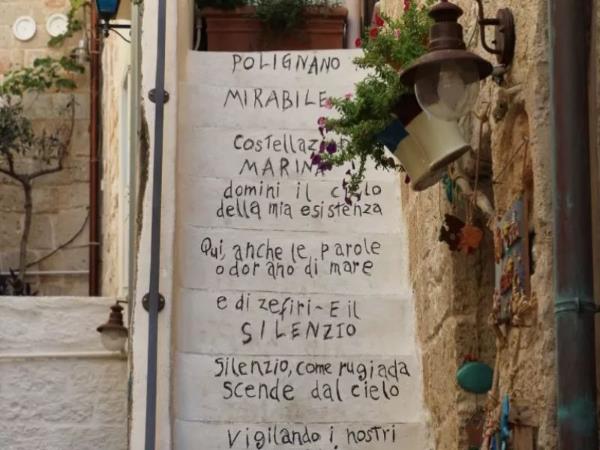 POLIGNANO
MIRABILE
COSTELLAZIO
MARINA
domini il cielo
della mia esistenza
Qui, anche le parole
odorano di mare
e di zefiri-E il
SILENZIO
Silenzio, come rugiada
scende dal cielo
Vigilando i nostri